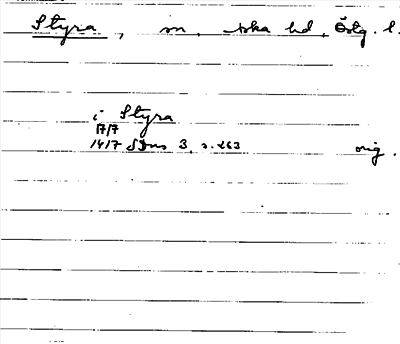 Styra, sn, Aska hd, Östg. l.
i Styra
17/7
1417 SDns 3, s. 263 orig.